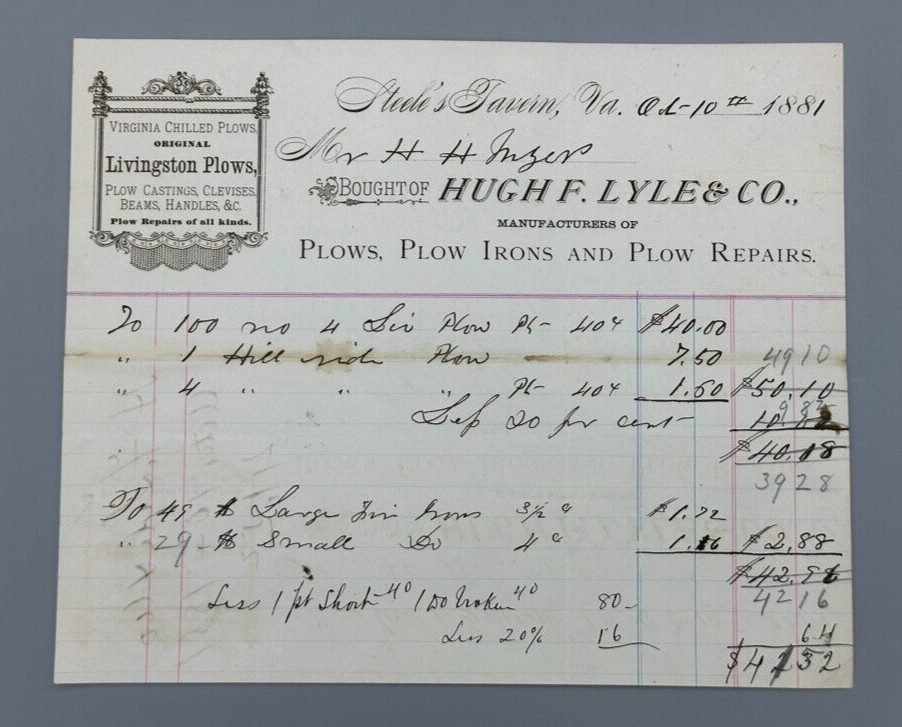 VIRGINIA CHILLED PLOWS,
ORIGINAL
Livingston Plows,
PLOW CASTINGS, CLEVISES,
BEAMS, HANDLES, &C.
Plow Repairs of all kinds.
Steele's Tavern, Va. Oct 10th 1881
Mr H H Myers
BOUGHT OF HUGH F. LYLE & CO.,
MANUFACTURERS OF
PLOWS, PLOW IRONS AND PLOW REPAIRS.
To 100 no 4 Liv Plow Pt 40¢ $40.00
" 1 Hill side Plow 7.50 4910
" 4 " " " Pt 40¢ 1.60 $50.10
Less 20 per cent 10.02 982
$40.18
3928
To 49 # Large Irons 3½ ¢ $1.72
" 29 # Small Do 4 ¢ 1.16 $2.88
4216
Less 1 pt Short 40 1 Do broken 40 80
Less 20% 16 64
$4132